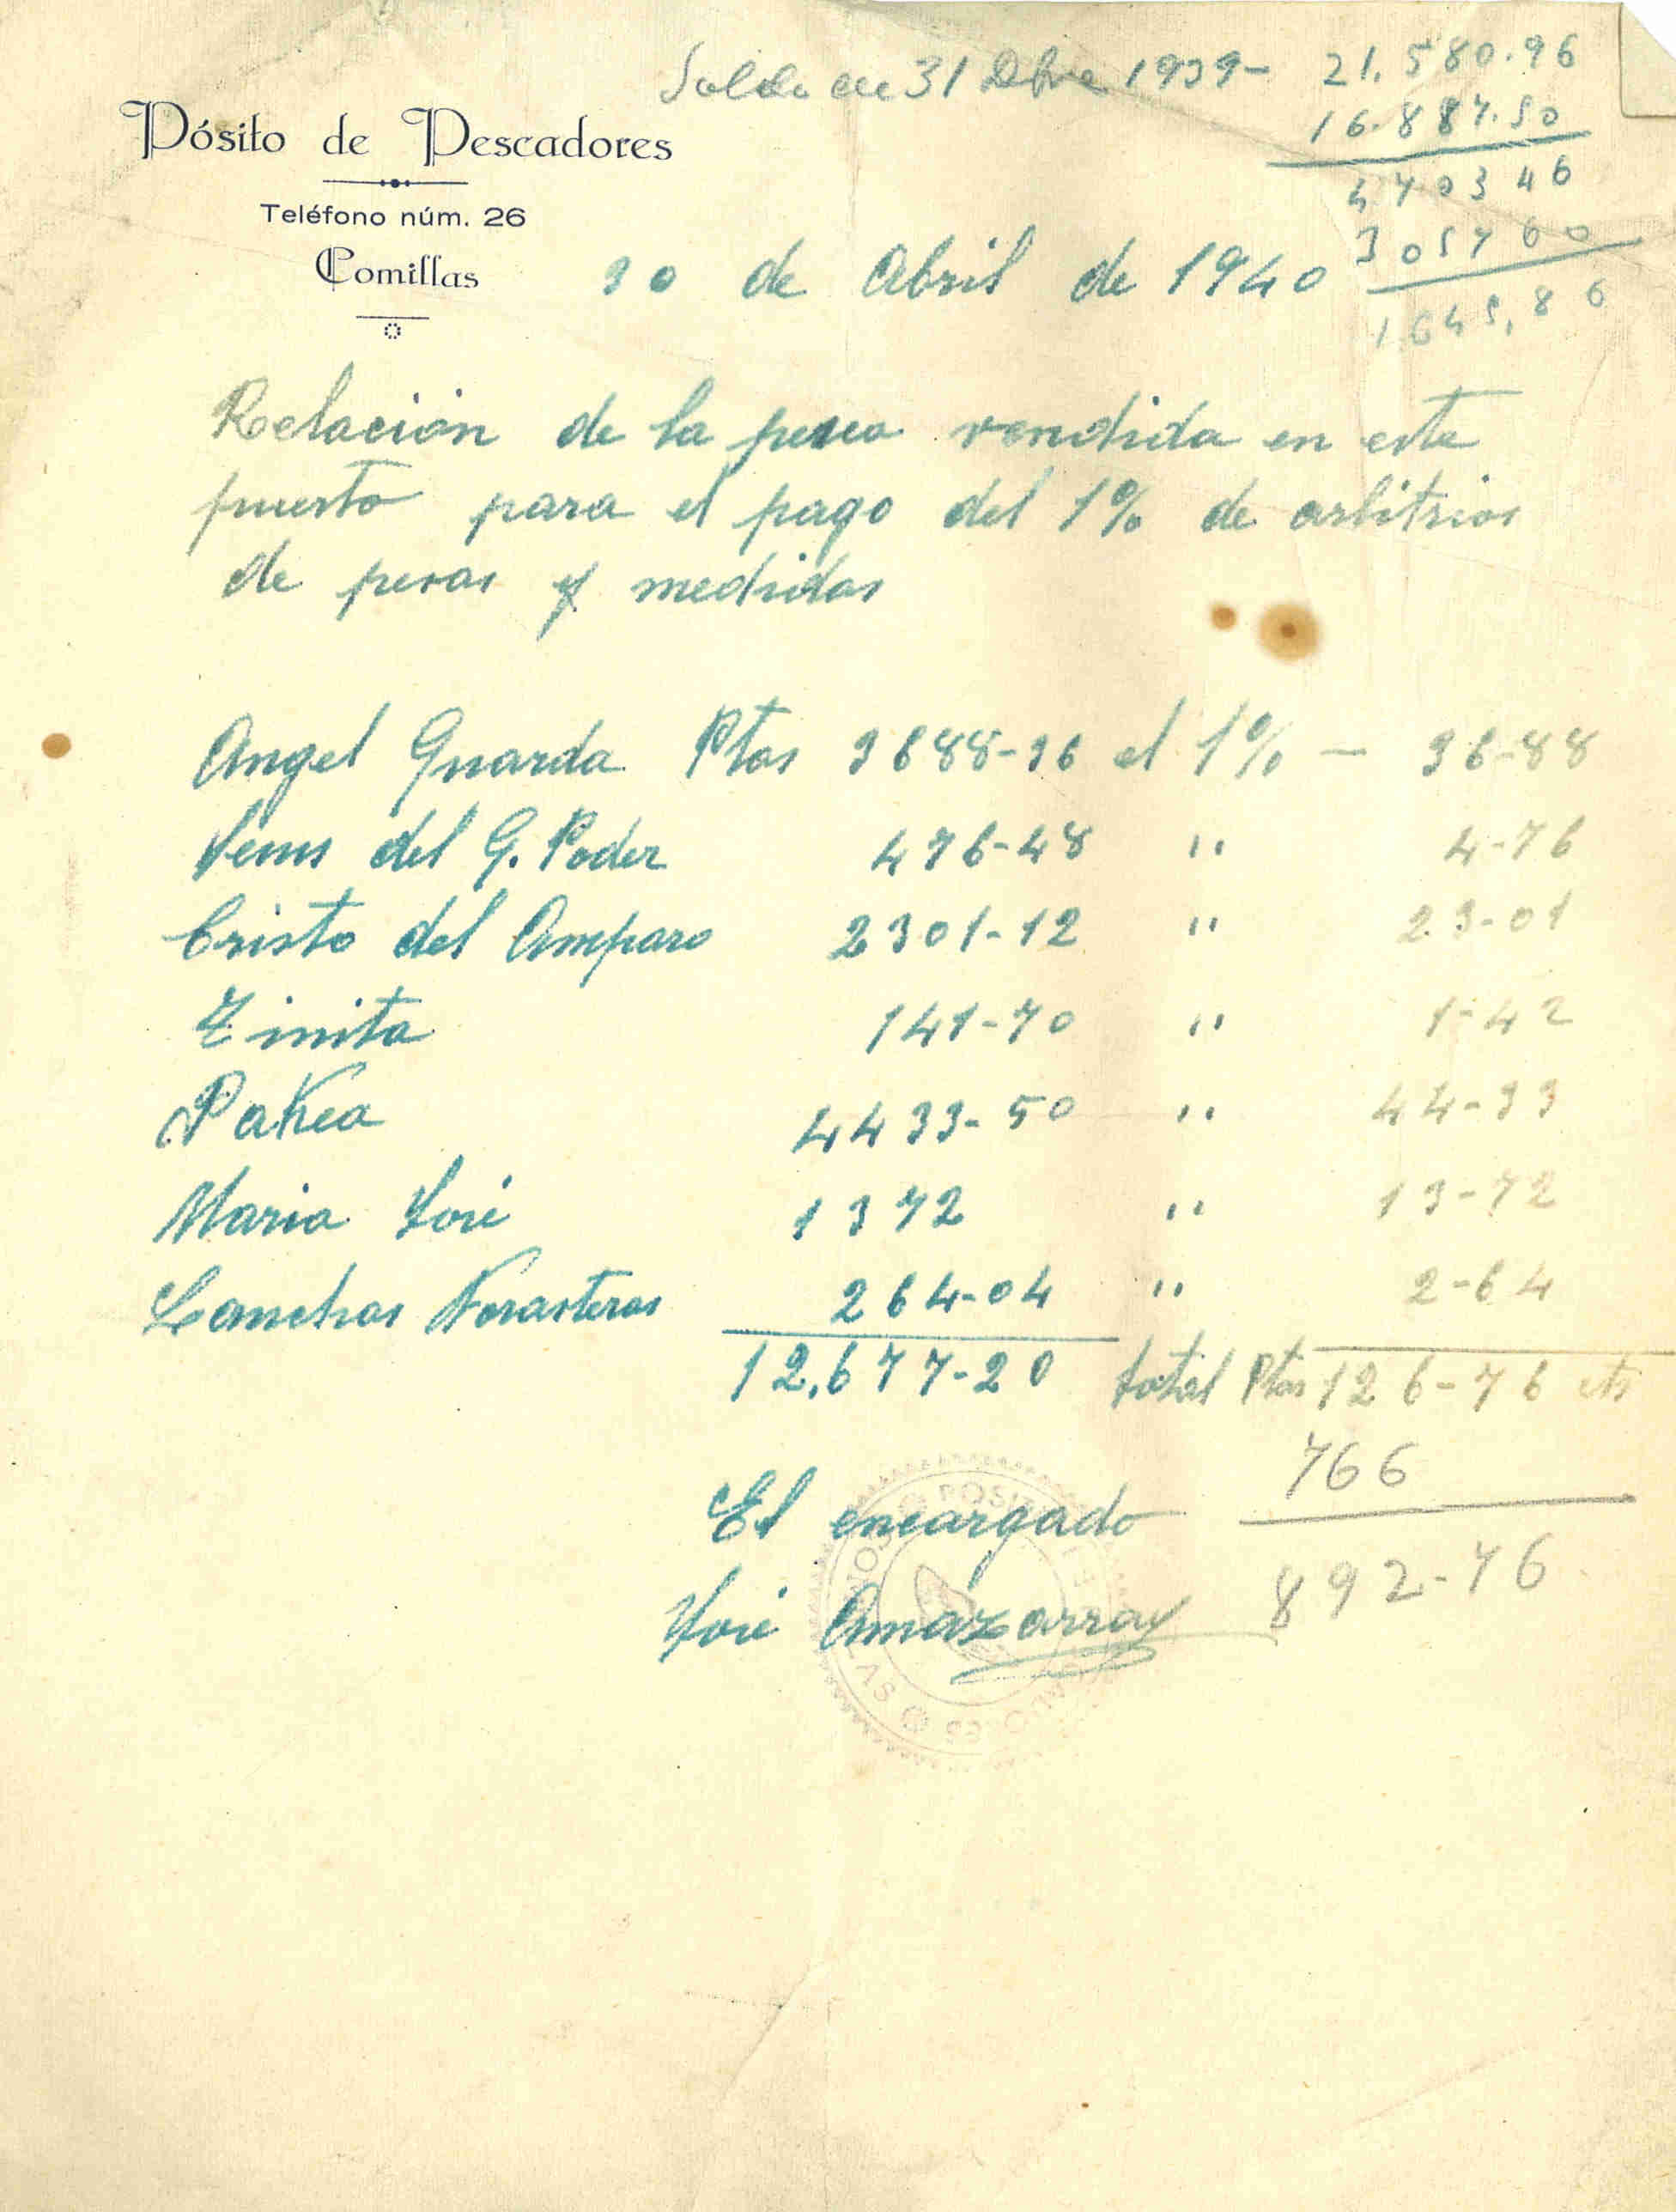 Saldo en 31 Dbre 1939- 21.580.96
16.887.50
4703 46
3057 60
1645,86
Pósito de Pescadores
Teléfono núm. 26
Comillas
30 de Abril de 1940
Relación de la pesca vendida en este
puerto para el pago del 1% de arbitrios
de pesas y medidas
Angel Guarda Ptas 3688-36 el 1% - 36-88
Jesus del G. Poder 476-48 " 4-76
Cristo del Amparo 2301-12 " 23-01
Zinita 141-70 " 1-42
Pakea 4433-50 " 44-33
Maria José 1372 " 13-72
Lanchas Forasteras 264-04 " 2-64
12.677-20 total Ptas 126-76 cts
766
El encargado
892-76
José Amazarray